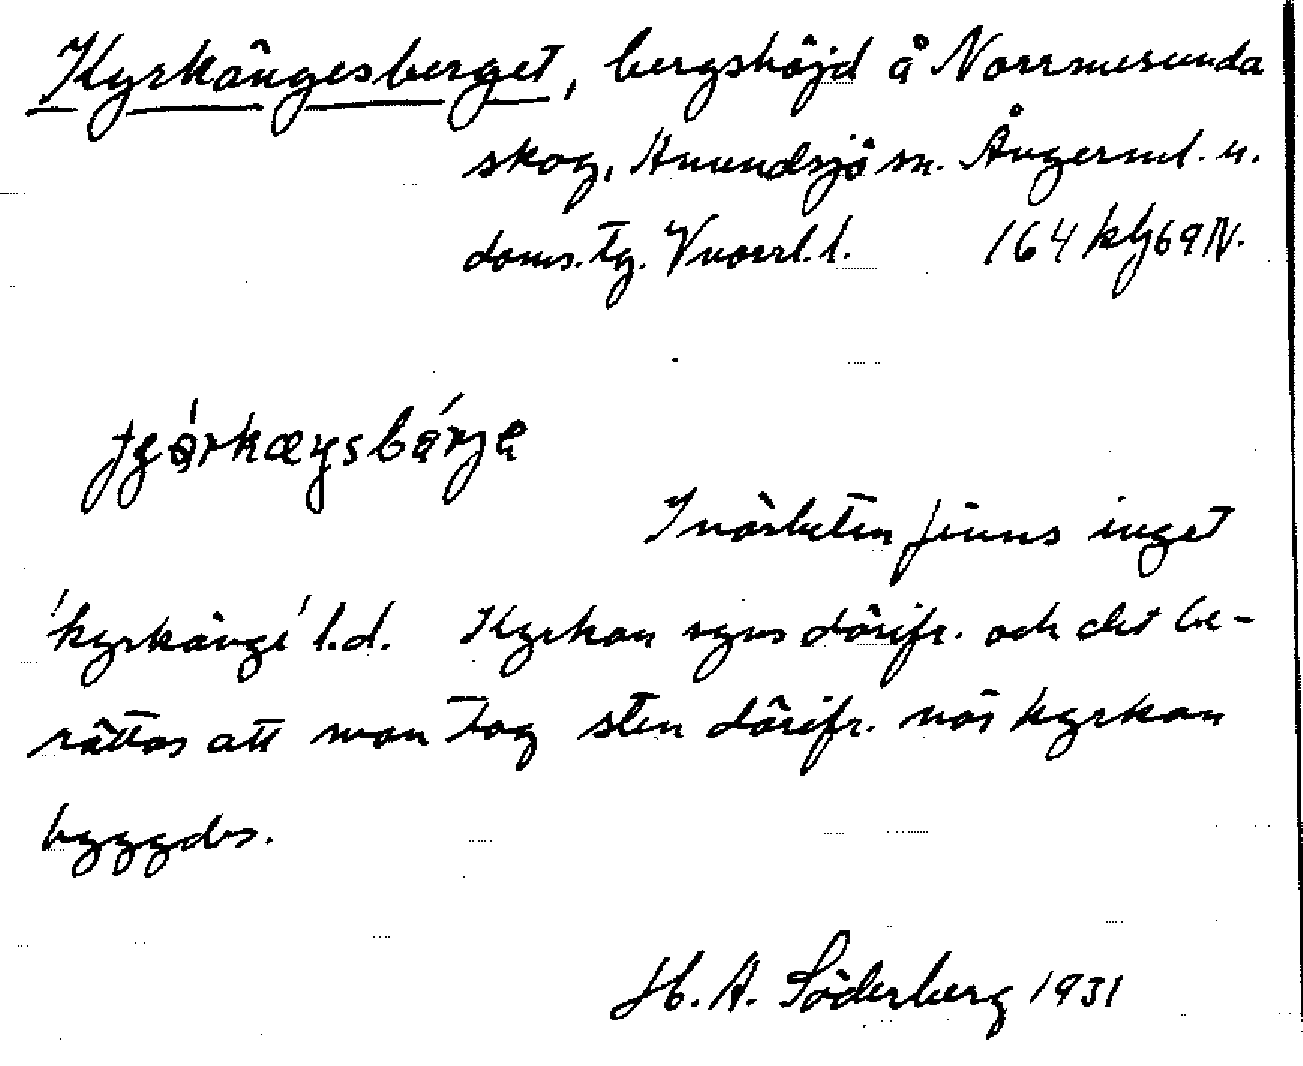 Kyrkängesberget, bergshöjd å Norrmesunda
skog, Anundsjö sn. Ångerml. n.
doms. tg. Vvoerl. l. 164 khj 69 N.
I närheten finns inget
'kyrkänge' l.d. Kyrkan syns därifr. och det be-
rättas att man tog sten därifr. när kyrkan
byggdes.
H. A. Söderberg 1931